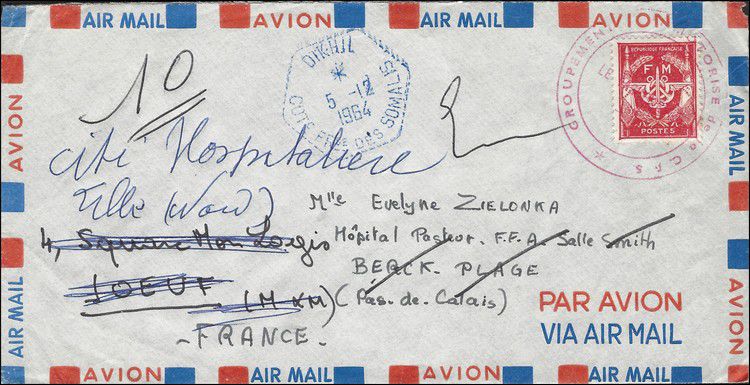 AIR MAIL AVION AIR MAIL AVION AIR MAIL AVION
10
DIKHIL
5 -12
1964
COTE FSE DES SOMALIS
GROUPEMENT
F M
REPUBLIQUE FRANÇAISE
POSTES
Cité Hospitalière
Lille (Nord)
Mlle Evelyne ZIELONKA
4, Square Mon Logis
Hôpital Pasteur. F.F.A. Salle Smith
JOEUF
BERCK. PLAGE
(M & M)
(Pas-de-Calais)
- FRANCE -
PAR AVION
VIA AIR MAIL
AVION
AIR MAIL
AVION
AIR MAIL
AVION AIR MAIL AVION AIR MAIL AVION AIR MAIL